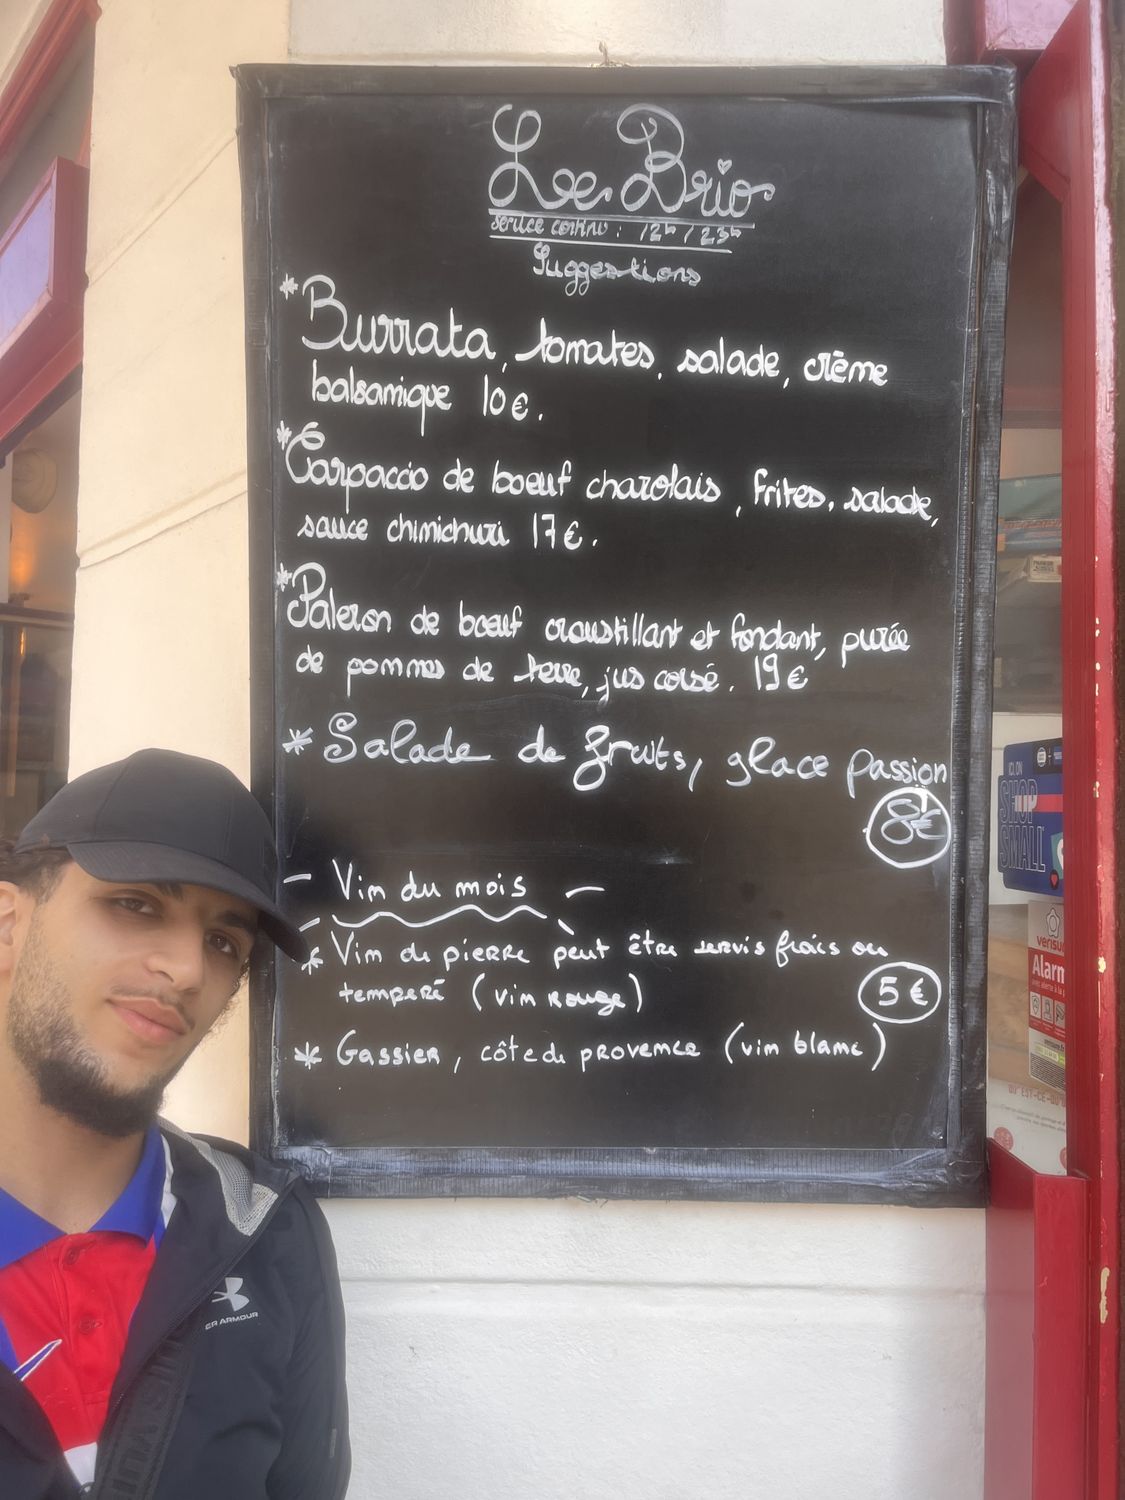 Lee Brio
service continu : 12h / 23h
Suggestions
* Burrata, tomates, salade, crème
balsamique 10€.
* Carpaccio de boeuf charolais, frites, salade,
sauce chimichuri 17€.
* Paleron de bœuf croustillant et fondant, purée
de pommes de terre, jus corsé. 19€
* Salade de fruits, glace passion
8€
- Vin du mois -
* Vin de pierre peut être servis frais ou
temperé (vin rouge)
5€
* Gassier, côte de provence (vin blanc)
SHOP
SMALL
verisure
Alarm
ER ARMOUR